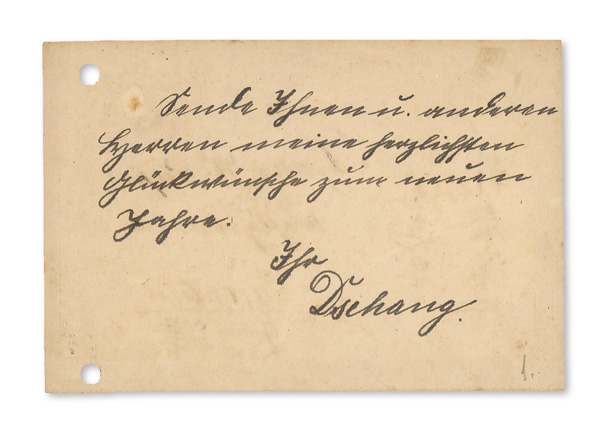 Sende Ihnen u. anderen
Herren meine herzlichsten
Glückwünsche zum neuen
Jahre.
Ihr
Dschang.
1.